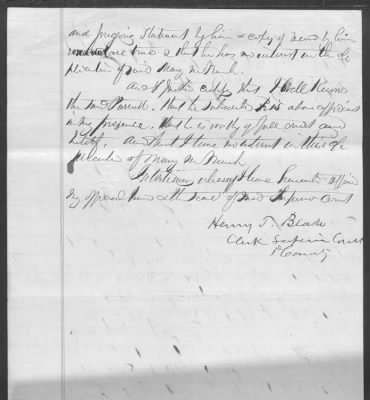 and foregoing statement by him & copy of record by him
are true & that he has no interest in the ap
plication of said Mary M
And I further certify that I well know
the said that he subscribed his above affidavit
in my presence. that he is worthy of full credit and
belief. And that I have no interest in this ap
plication of Mary M
In testimony whereof I have hereunto affixed
my official hand & the seal of said Superior Court
Henry T. Blake
Clerk Superior Court
County